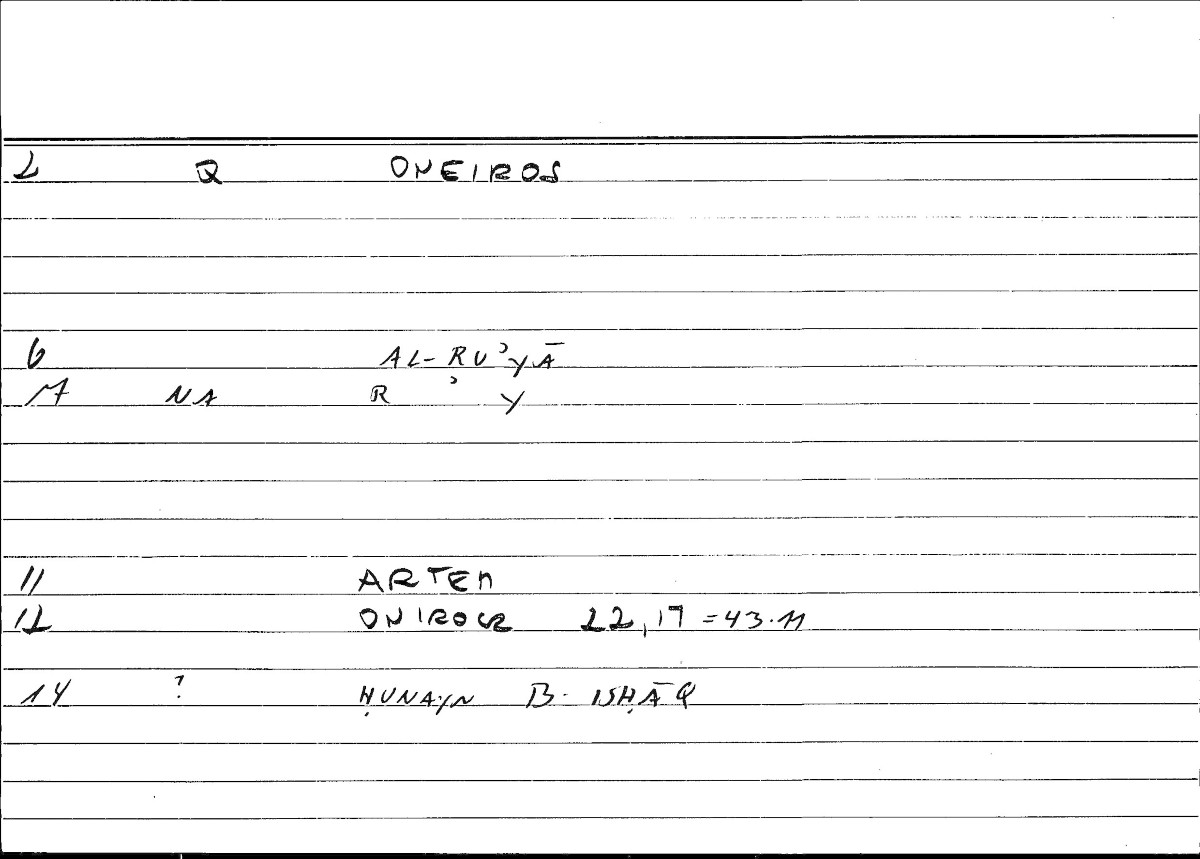 2 Q ONEIROS
6 AL-RUʾYĀ
7 NA R ʾ Y
11 ARTEM
12 ONIROCR 22,17 = 43.11
14 ? ḤUNAYN B. ISḤĀQ